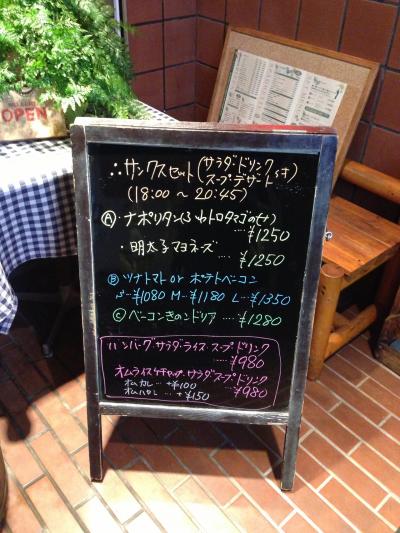 OPEN
∴サンクスセット(サラダ・ドリンク
スープ・デザート付)
(18:00 〜 20:45)
Ⓐ・ナポリタン(ふわトロタマゴのせ)
…¥1250
・明太子マヨネーズ
…¥1250
Ⓑツナトマト or ポテトベーコン
S…¥1080 M…¥1180 L…¥1350
Ⓒベーコンきのこドリア….¥1280
ハンバーグ・サラダ・ライス・スープ・ドリンク
…¥980
オムライスケチャップ・サラダ・スープ・ドリンク
オムカレ…+¥100 …¥980
オムハヤシ…+¥150